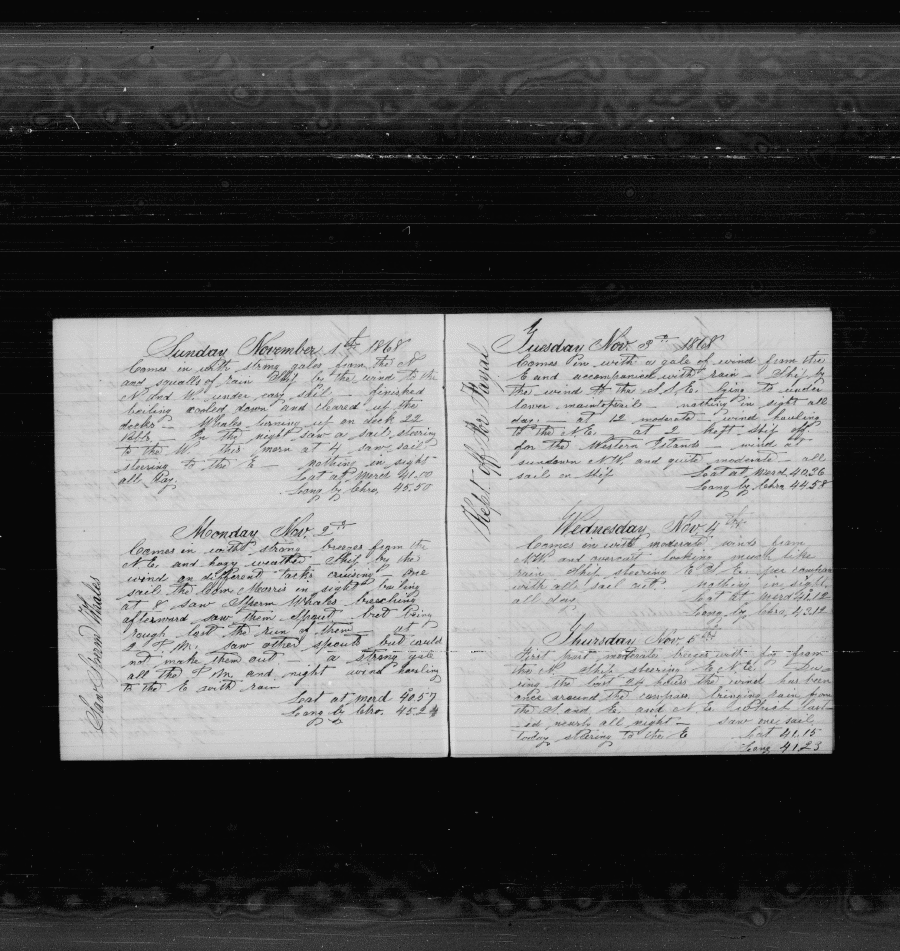 Sunday November 1st 1868
Comes in with strong gales from the S
and squalls of rain Ship by the wind to the
N and W. under easy sail - finished
boiling cooled down and cleared up the
decks Whales turning up on deck 22
bbls. - In the night saw a sail steering
to the W. this morn at 4 saw sail
steering to the E - Nothing in sight
all Day. Lat at Merd 41.00
Long by Chro. 45.50
Monday Nov. 2nd
Comes in with strong breezes from the
N E. and hazy weather Ship by the
wind on different tacks cruising one
sail the Wm Morris in sight boiling
at 8 saw Sperm Whales breaching
afterward saw them Spout but being
rough lost the run of them - at
2 P.M. saw other spouts but could
not make them out - a strong gale
all the P.M. and night wind hauling
to the E with rain
Lat at merd 40.57
Long by Chro. 45.24
Saw Sperm Whales
Tuesday Nov. 3rd 1868
Comes in with a gale of wind from the
E and accompanied with rain - Ship by
the wind to the S.S.E. lying to under
lower maintopsail - nothing in sight all
day - at 12 moderate wind hauling
to the N.E. at 2 kept Ship off
for the Western Islands - wind at
sundown N.W. and quite moderate - all
sails on Ship Lat at Merd 40.36
Long by Chro 44.58
Kept off for the Fayal
Wednesday Nov 4th
Comes in with moderate winds from
N.W. and overcast looking much like
rain Ship steering E.S.E. per compass
with all sail out Nothing in sight
all day. Lat at Merd 41.12
Long by Chro. 43.12
Thursday Nov. 5th
First part moderate breeze with fog from
the N. Ship steering E N E. Du-
ring the last 24 hours the wind has been
once around the compass bringing rain from
the S. and E. and N.E. which last-
ed nearly all night - saw one sail
today steering to the E Lat 41.15
Long 41.23